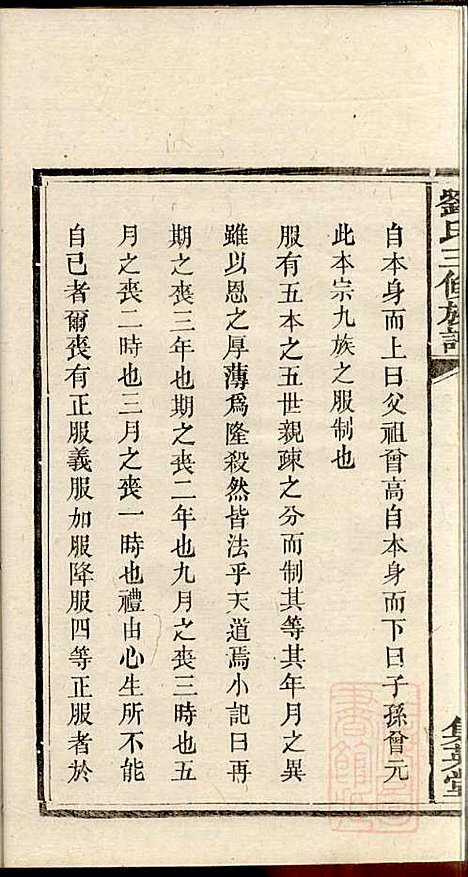 劉氏三修族譜
集英堂
自本身而上曰父祖曾高自本身而下曰子孫曾元
此本宗九族之服制也
服有五本之五世親疎之分而制其等其年月之異
雖以恩之厚薄爲隆殺然皆法乎天道焉小記曰再
期之喪三年也期之喪二年也九月之喪三時也五
月之喪二時也三月之喪一時也禮由心生所不能
自已者爾喪有正服義服加服降服四等正服者於